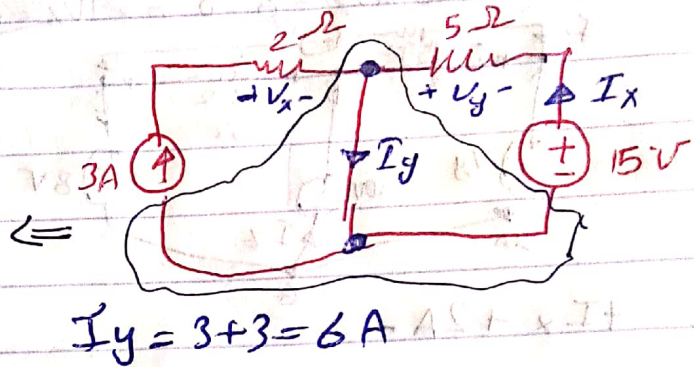 2 Ω 5 Ω
+ Vx - + Vy - Ix
3A Iy + - 15 V
<=
Iy = 3+3 = 6 A